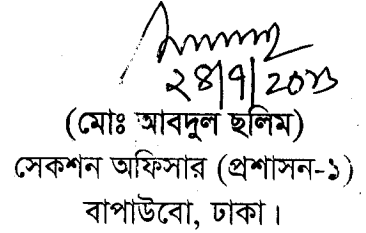 ২৪/৭/২০১৩
(মোঃ আবদুল ছলিম)
সেকশন অফিসার (প্রশাসন-১)
বাপাউবো, ঢাকা।